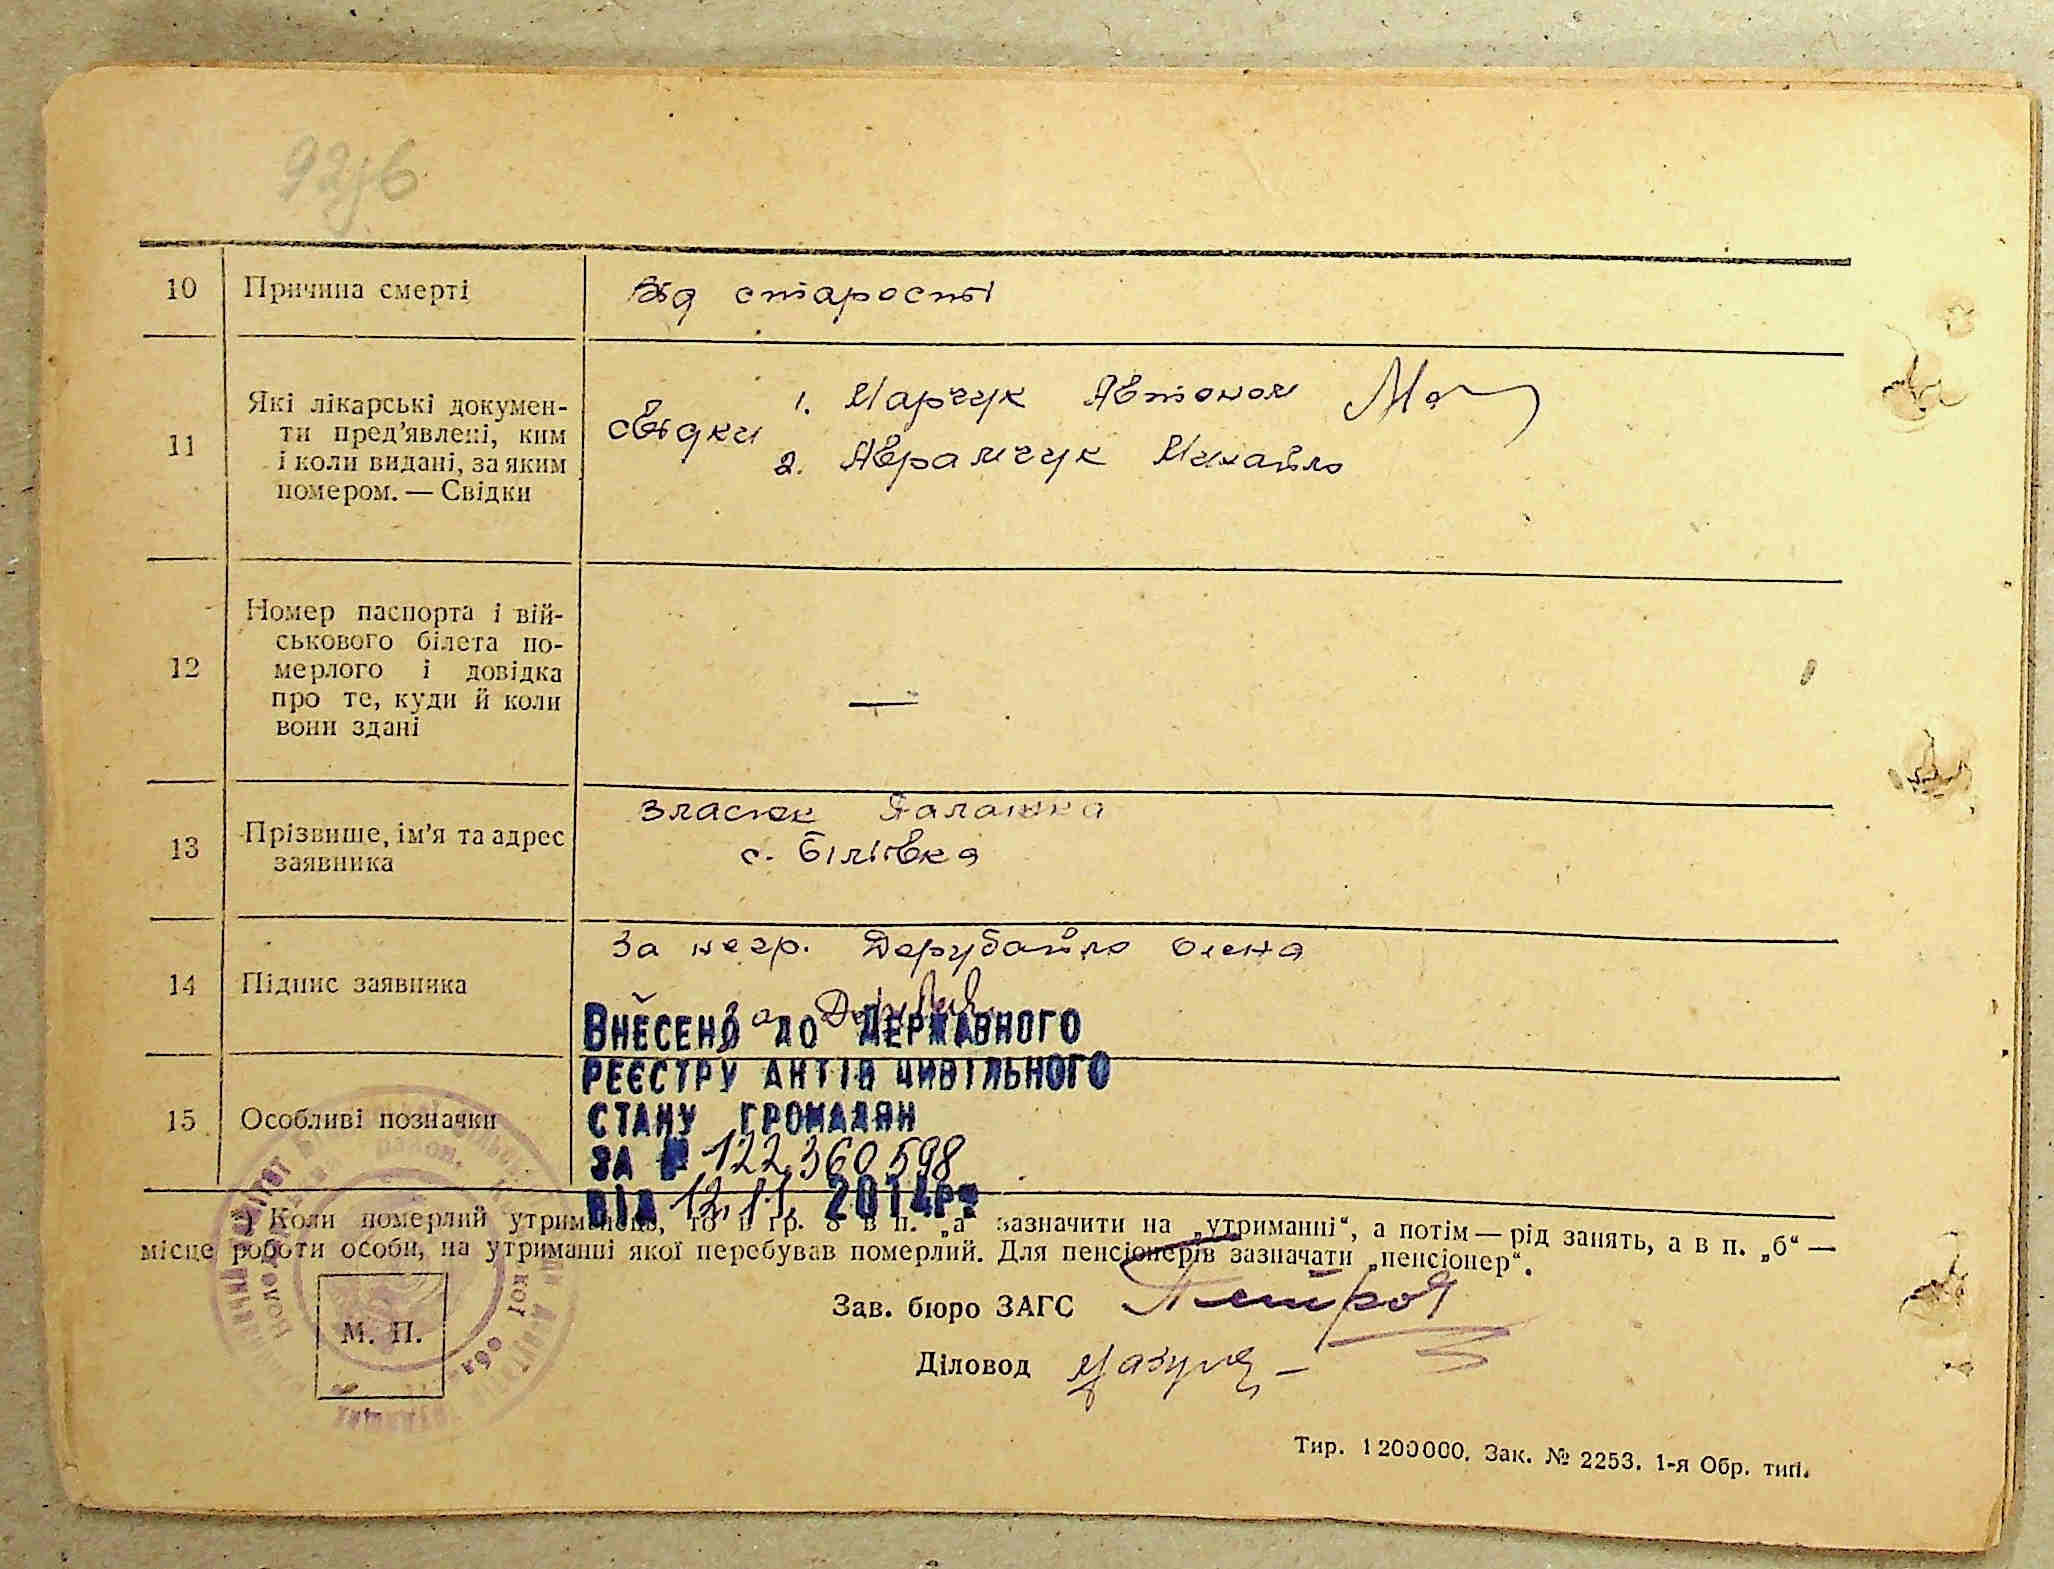 10 Причина смерті Від старості
11 Які лікарські докумен-
ти пред'явлені, ким
і коли видані, за яким
помером. — Свідки
свідки 1. Марчук Автоном
2. Аврамчук Михайло
12 Номер паспорта і вій-
ськового білета по-
мерлого і довідка
про те, куди й коли
вони здані
—
13 Прізвище, ім'я та адрес
заявника
Власюк Палашка
с. Білівка
14 Підпис заявника
За негр. Дерубайло Олена
15 Особливі позначки
ВНЕСЕНО ДО ДЕРЖАВНОГО
РЕЄСТРУ АКТІВ ЦИВІЛЬНОГО
СТАНУ ГРОМАДЯН
ЗА № 122360598
ВІД 12.11. 2014р.
Коли померлий то в гр. 8 в п. „а" зазначити на „утриманні", а потім — рід занять, а в п. „б" —
місце роботи особи, на утриманні якої перебував померлий. Для пенсіонерів зазначати „пенсіонер".
Зав. бюро ЗАГС
Діловод
М. П.
Тир. 1200000. Зак. № 2253. 1-я Обр. тип.